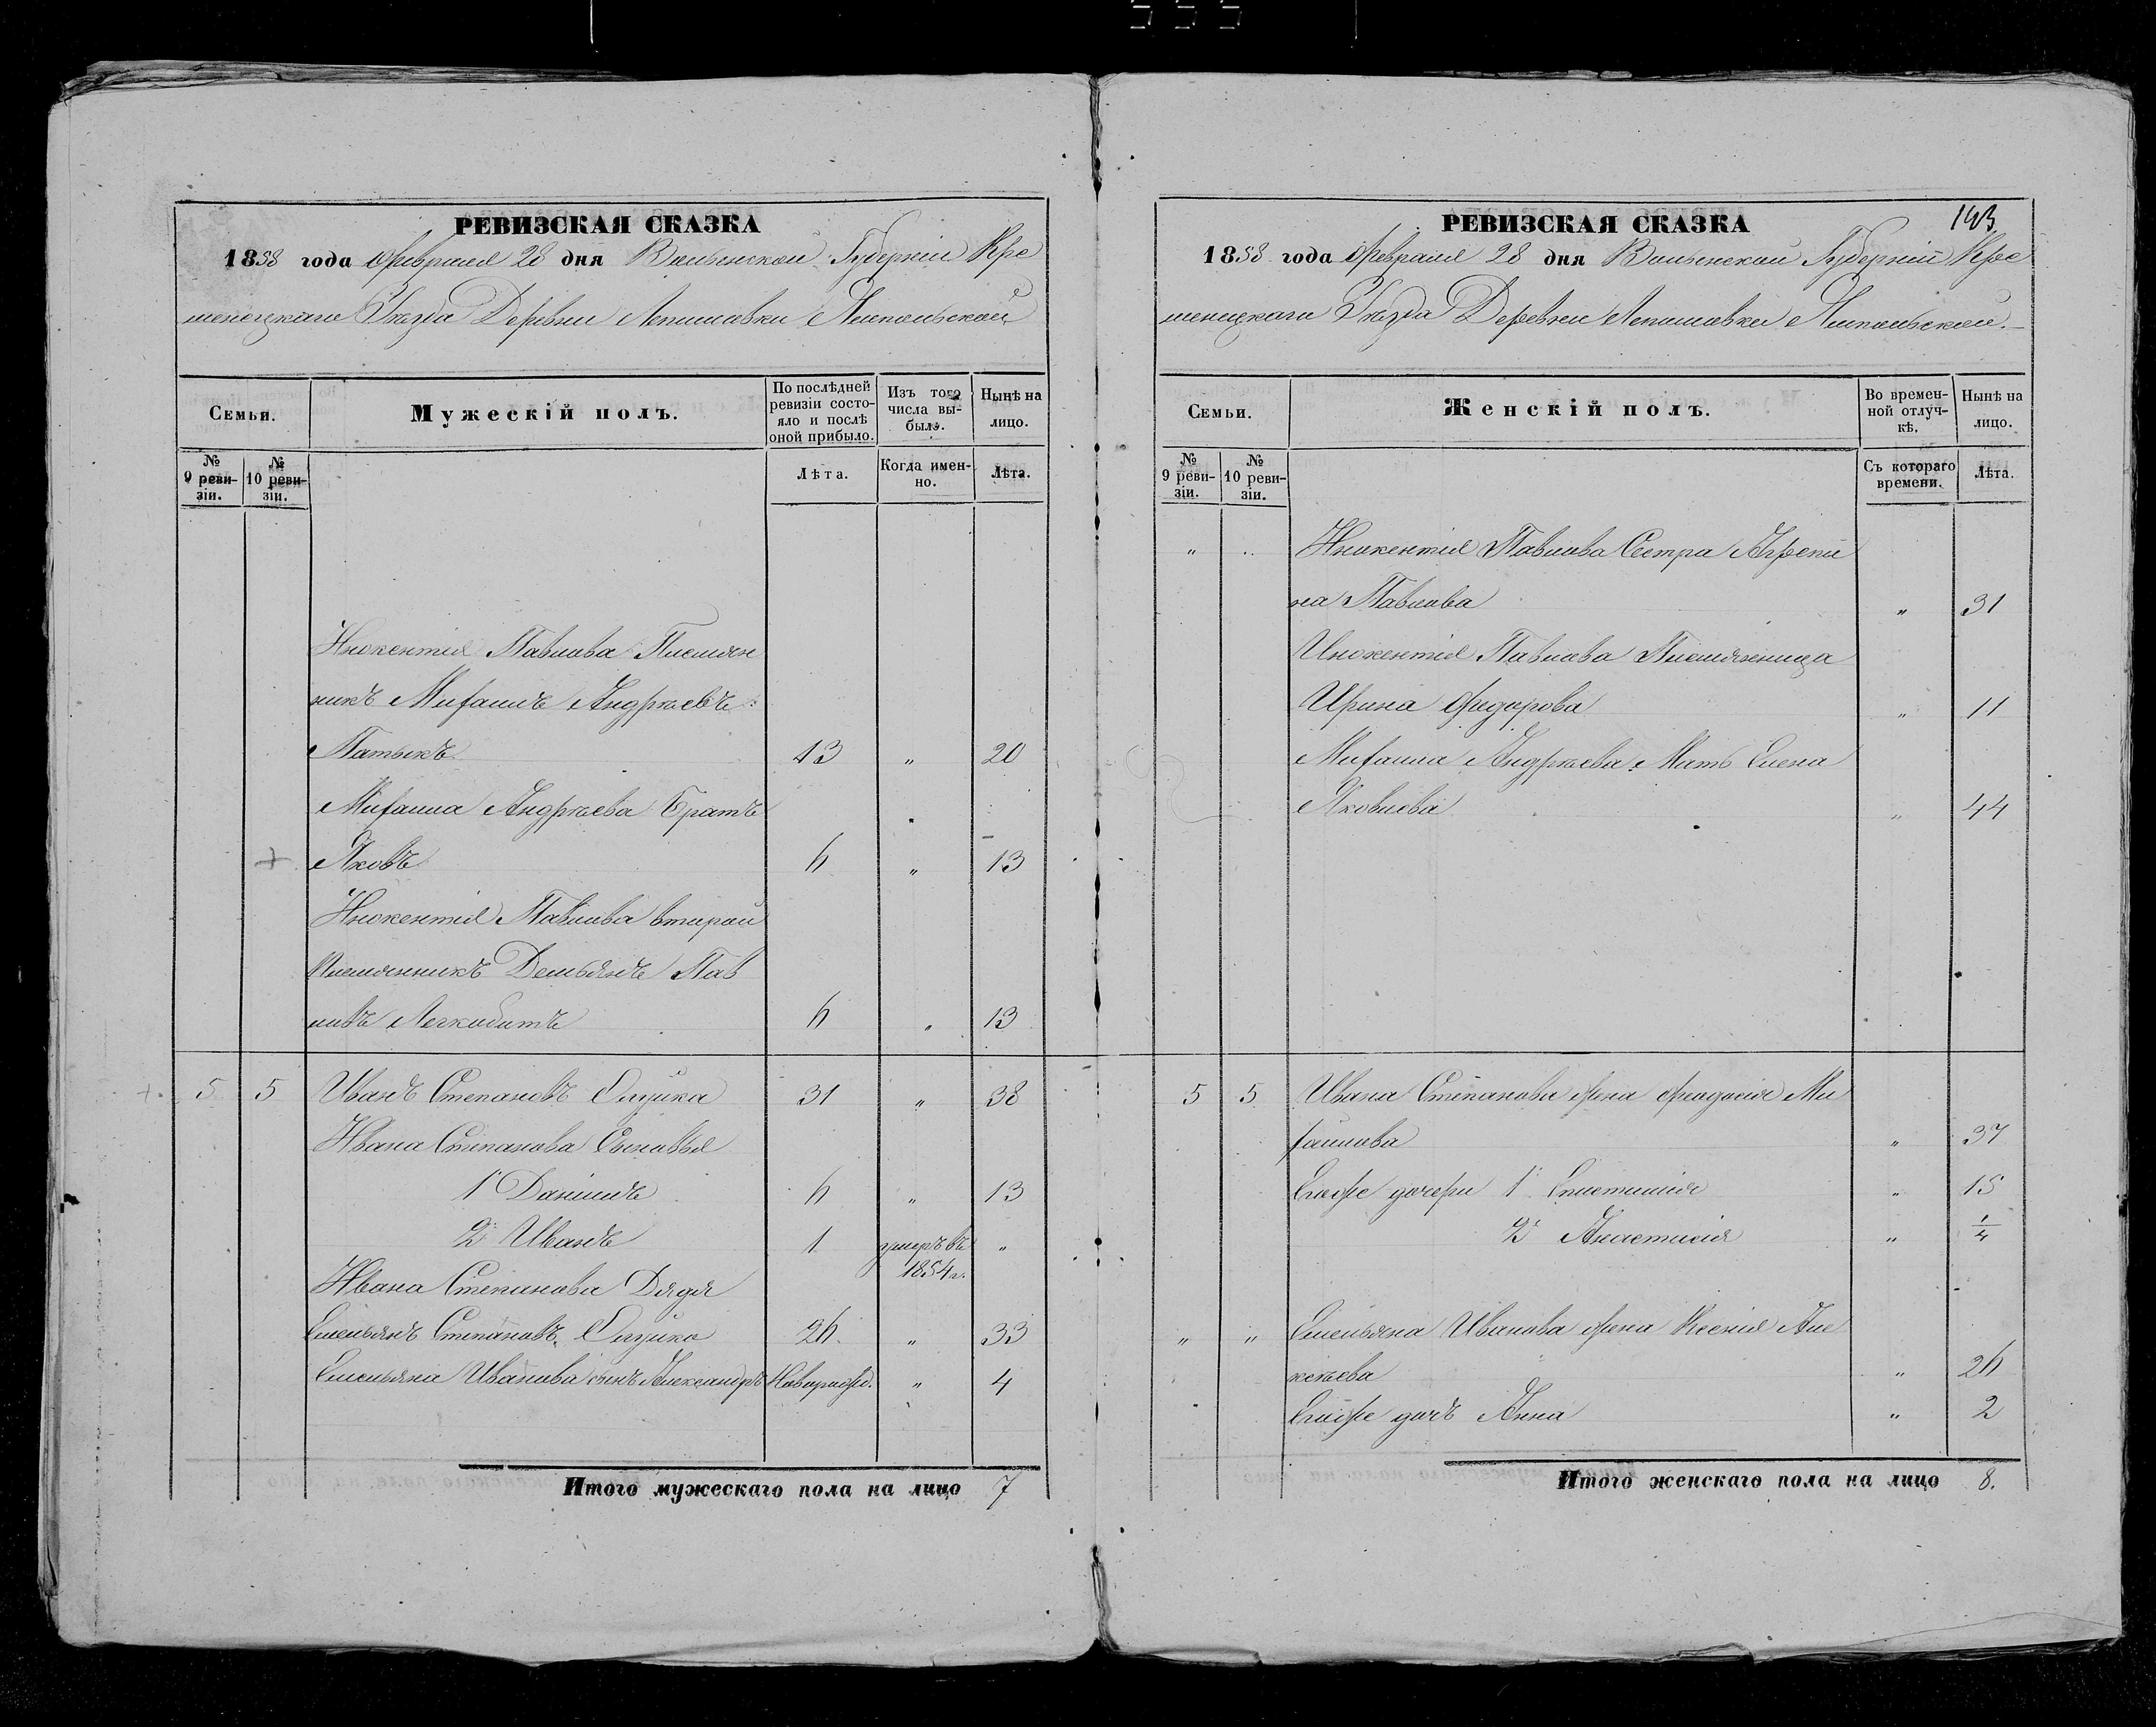 РЕВИЗСКАЯ СКАЗКА
1858 года Февраля 28 дня Волынской Губерніи Кре
менецкаго Уѣзда Деревни Лепешовки
Семьи.
Мужескій полъ.
По послѣдней ревизіи состояло и послѣ оной прибыло.
Изъ того числа выбыло.
Нынѣ на лицо.
№ 9 ревизіи.
№ 10 ревизіи.
Лѣта.
Когда именно.
Лѣта.
Инокентія Павлова Племян
никъ Михаилъ Андрѣевъ
Патыкъ 13 " 20
Михаила Андрѣева Братъ
+ Яковъ 6 " 13
Инокентія Павлова второй
племянникъ Демьянъ Пав
ловъ 6 " 13
5 5 Иванъ Степановъ 31 " 38
Ивана Степанова Сыновья
1й Данiилъ 6 " 13
2й Иванъ 1 умеръ въ 1854 г. "
Ивана Степанова Дядя
Емельянъ Степановъ 26 " 33
Емельяна Иванова сынъ Александръ Новорожд. " 4
Итого мужескаго пола на лицо 7
РЕВИЗСКАЯ СКАЗКА
143
1858 года Февраля 28 дня Волынской Губерніи Кре
менецкаго Уѣзда Деревни Лепешовки
Семьи.
Женскій полъ.
Во временной отлучкѣ.
Нынѣ на лицо.
№ 9 ревизіи.
№ 10 ревизіи.
Съ котораго времени.
Лѣта.
" " Инокентія Павлова Сестра Агрепи
на Павлова " 31
Инокентія Павлова Племяненица
Ирина Федорова " 11
Михаила Андрѣева Мать Елена
Яковлева " 44
5 5 Ивана Степанова жена Феодосія Ми
хайлова " 37
Егоже дочери 1я " 15
2я Анастасія " 1/4
" " Емельяна Иванова жена Ксенія Але
ксѣева " 26
Егоже дочь Анна " 2
Итого женскаго пола на лицо 8.